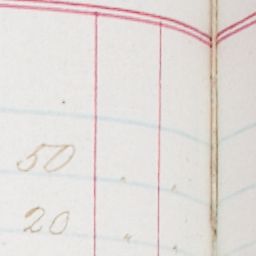 50 " "
20 " "